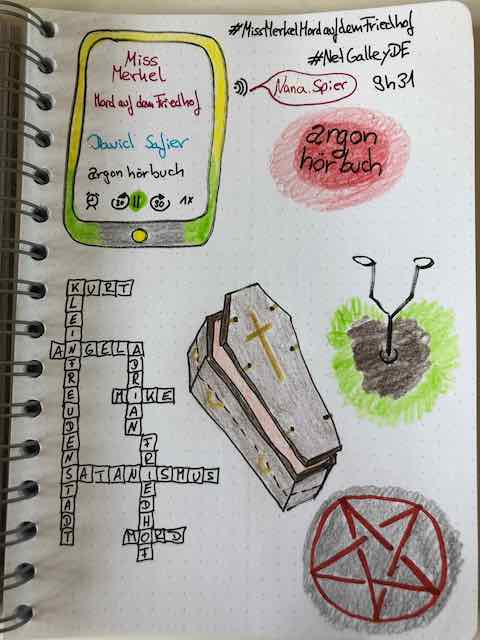 #MissMerkelMordaufdemFriedhof
#NetGalleyDE
Miss
Merkel
Mord auf dem Friedhof
David Safier
argon hörbuch
30
30
1x
Nana Spier
9h31
argon
hörbuch
KURT
KLEINFREUDENSTADT
ANGELA
ADRIAN
MIKE
FRIEDHOF
SATANISMUS
MORD